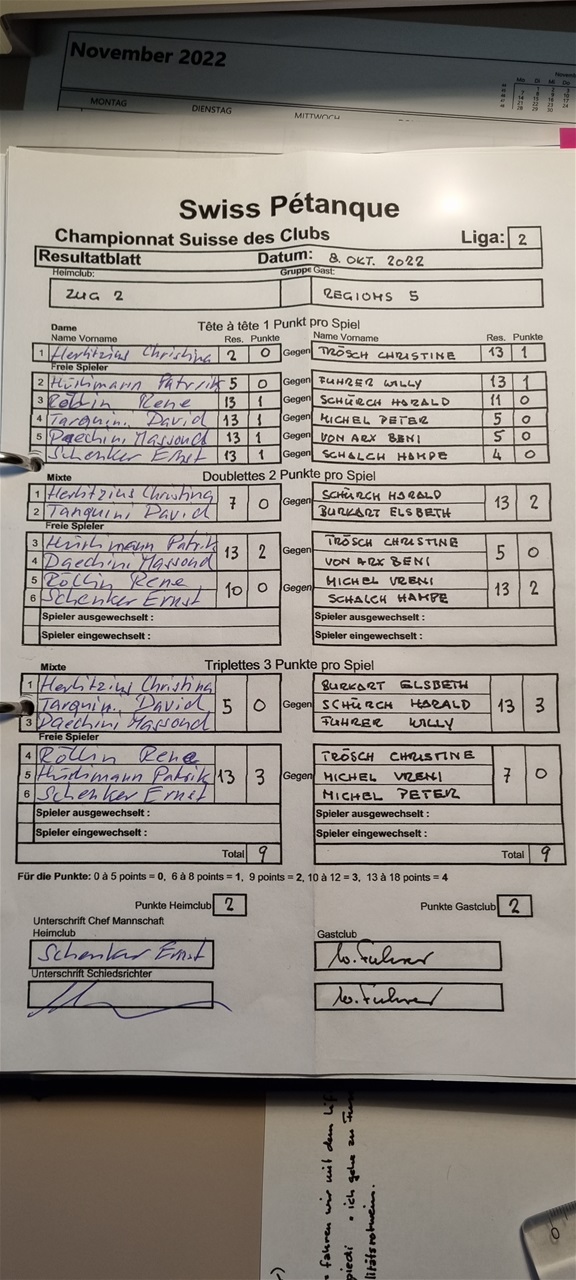 November 2022
MONTAG DIENSTAG MITTWOCH
Swiss Pétanque
Championnat Suisse des Clubs Liga: 2
Resultatblatt Datum: 8. OKT. 2022
Heimclub: Gruppe Gast:
ZUG 2 REGIOMS 5
Tête à tête 1 Punkt pro Spiel
Dame
Name Vorname Res. Punkte Name Vorname Res. Punkte
1 Herlitzius Christina 2 0 Gegen TRÖSCH CHRISTINE 13 1
Freie Spieler
2 Hürlimann Patrik 5 0 Gegen FUHRER WILLY 13 1
3 Röllin Rene 13 1 Gegen SCHÜRCH HARALD 11 0
4 Tarquini David 13 1 Gegen MICHEL PETER 5 0
5 Daechini Massond 13 1 Gegen VON ARX BENI 5 0
Schenker Ernst 13 1 Gegen SCHALCH HAMPE 4 0
Mixte Doublettes 2 Punkte pro Spiel
1 Herlitzius Christina SCHÜRCH HARALD
2 Tanquini David 7 0 Gegen BURKART ELSBETH 13 2
Freie Spieler
3 Hürlimann Patrik TRÖSCH CHRISTINE
4 Daechini Massond 13 2 Gegen VON ARX BENI 5 0
5 Röllin Rene MICHEL VRENI
6 Schenker Ernst 10 0 Gegen SCHALCH HAMPE 13 2
Spieler ausgewechselt : Spieler ausgewechselt :
Spieler eingewechselt : Spieler eingewechselt :
Mixte Triplettes 3 Punkte pro Spiel
1 Herlitzius Christina BURKART ELSBETH
Tarquini David 5 0 Gegen SCHÜRCH HARALD 13 3
3 Daechini Massond FUHRER WILLY
Freie Spieler
4 Röllin Rene TRÖSCH CHRISTINE
5 Hürlimann Patrik 13 3 Gegen MICHEL VRENI 7 0
6 Schenker Ernst MICHEL PETER
Spieler ausgewechselt : Spieler ausgewechselt :
Spieler eingewechselt : Spieler eingewechselt :
Total 9 Total 9
Für die Punkte: 0 à 5 points = 0, 6 à 8 points = 1, 9 points = 2, 10 à 12 = 3, 13 à 18 points = 4
Punkte Heimclub 2 Punkte Gastclub 2
Unterschrift Chef Mannschaft
Heimclub Gastclub
Schenker Ernst W. Fuhrer
Unterschrift Schiedsrichter
W. Fuhrer
fahren wir mit dem Lif
piedi • ich gehe zu Fu